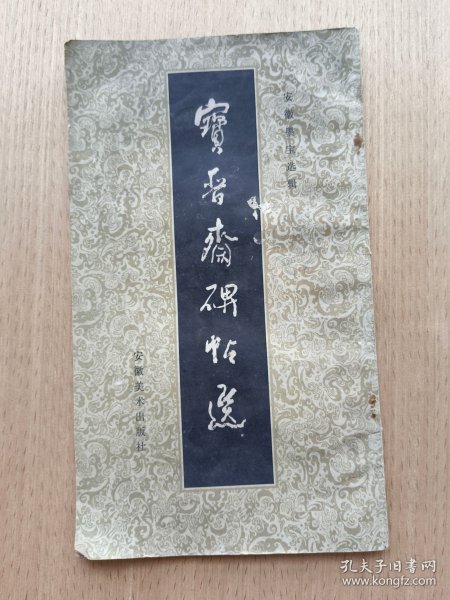 安徽墨宝选辑
寶晉齋碑帖選
安徽美术出版社
孔夫子旧书网
www.kongfz.com